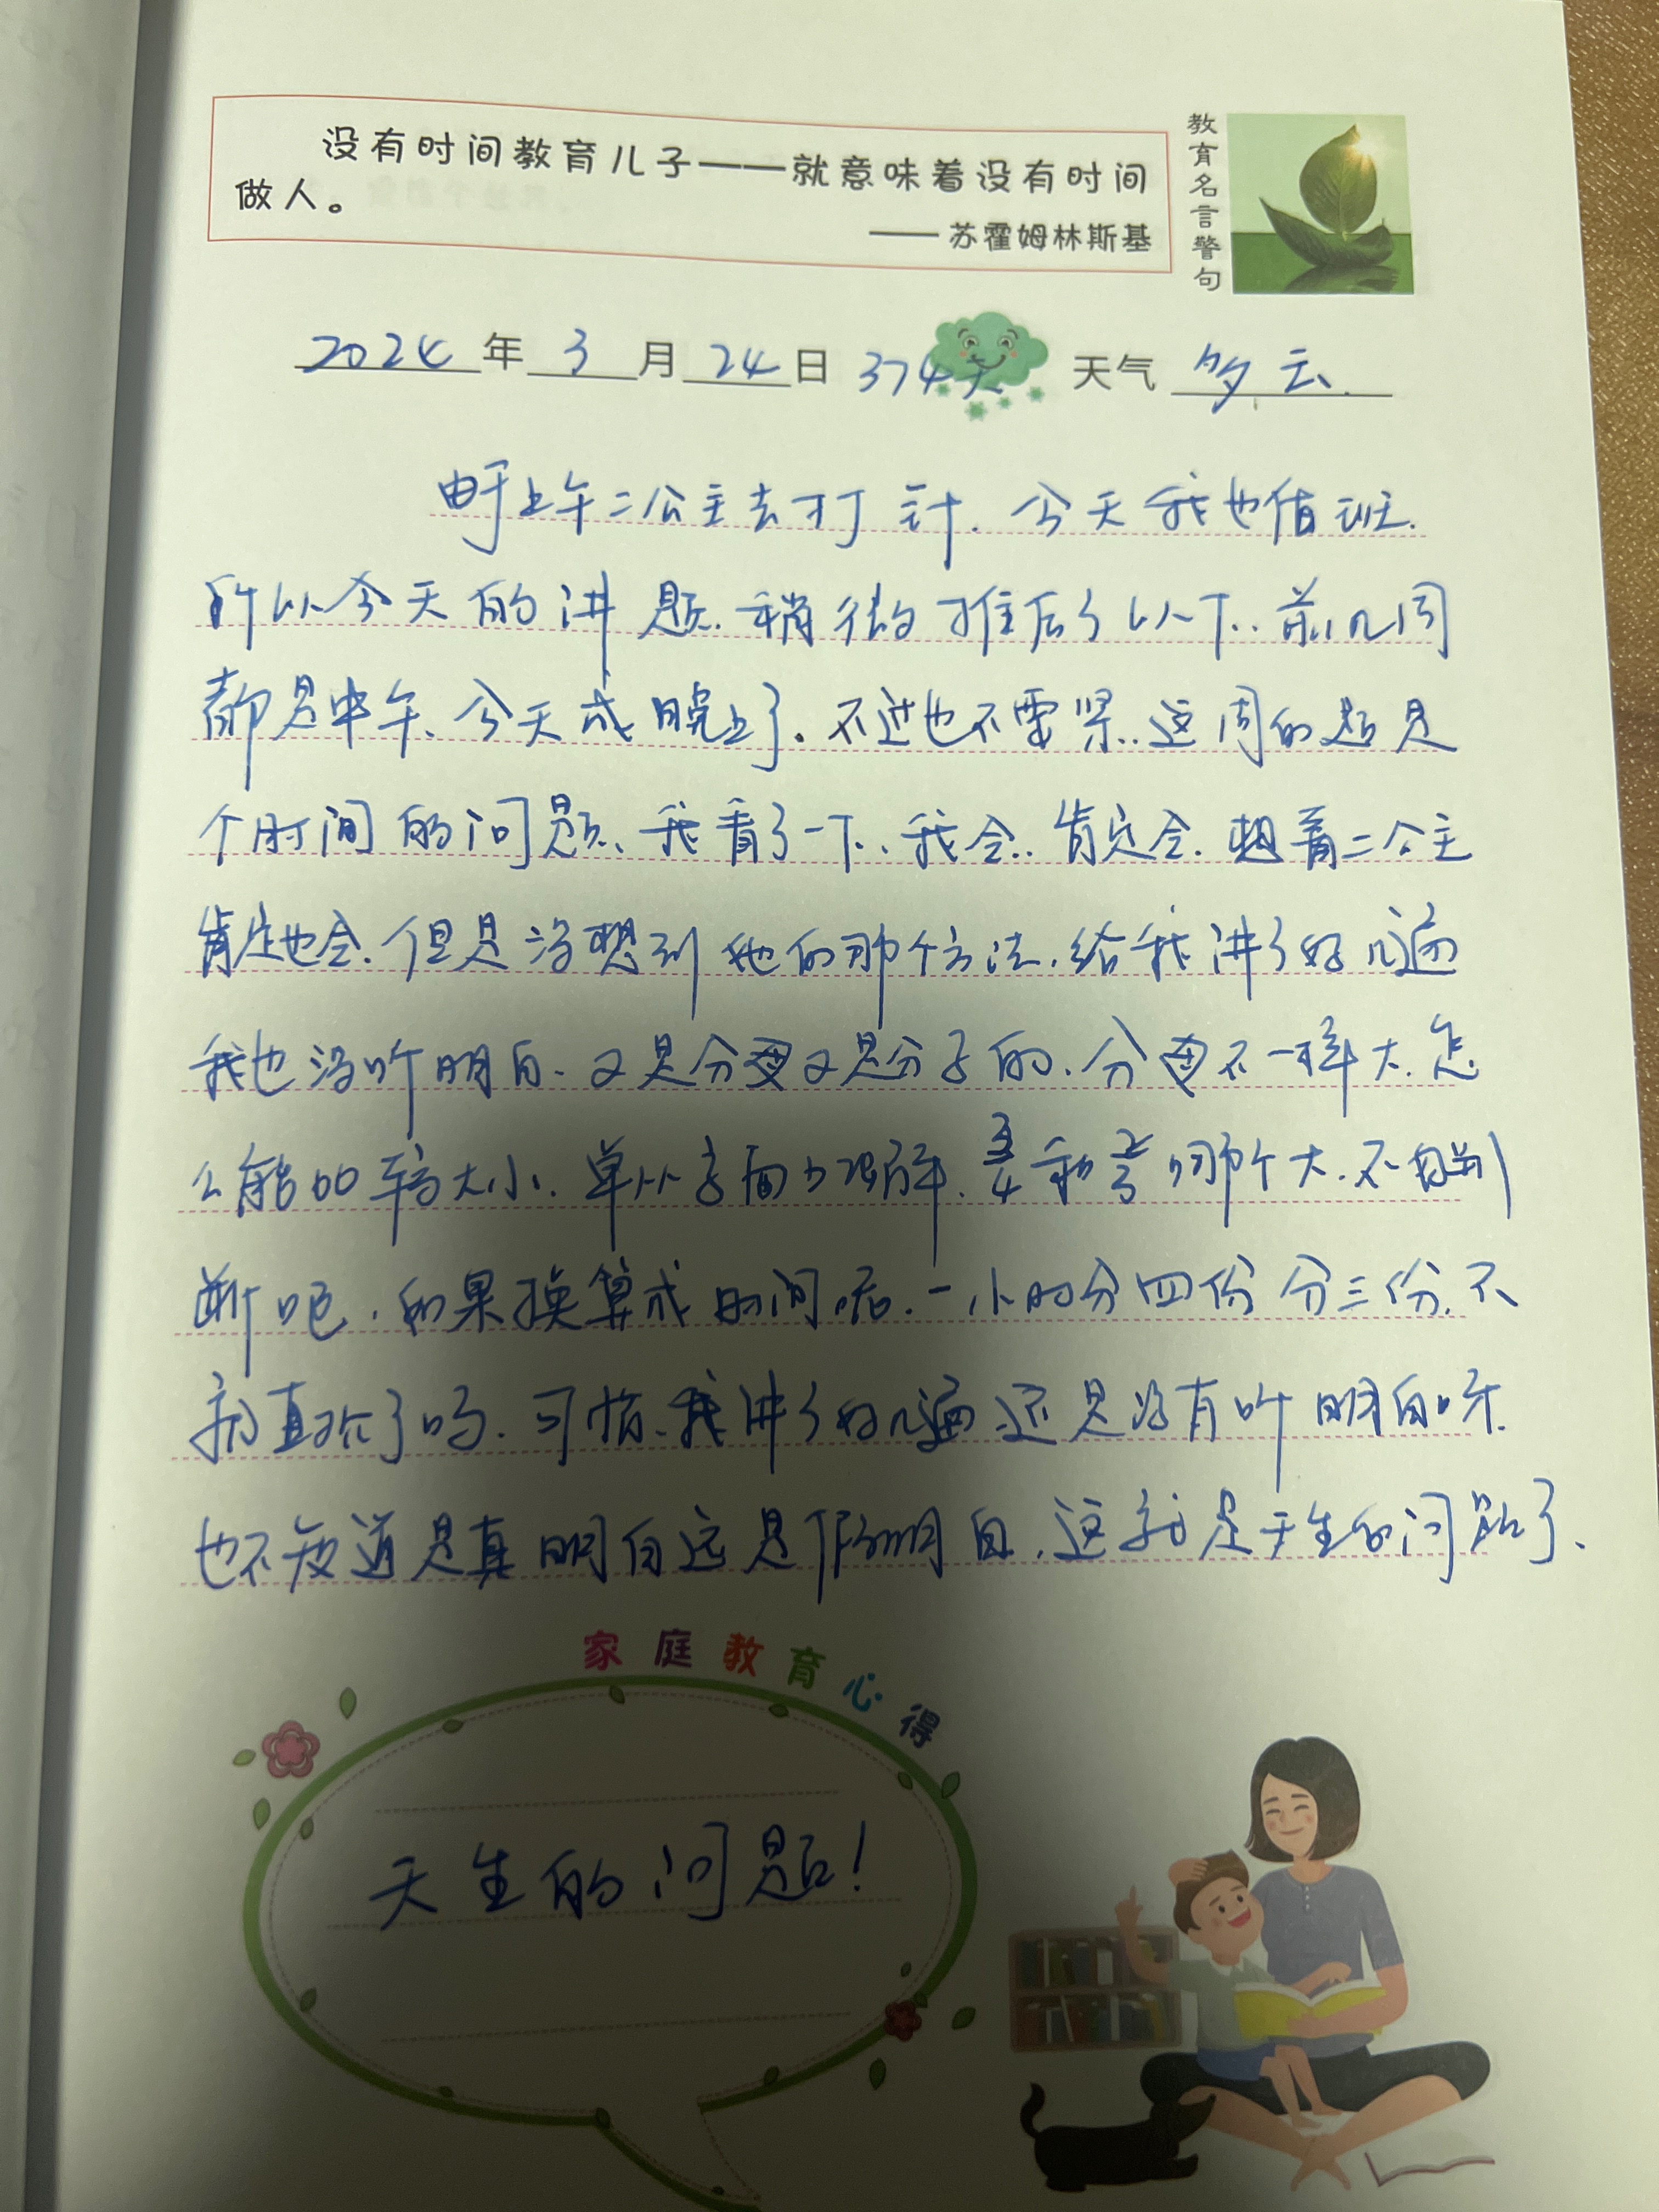 没有时间教育儿子——就意味着没有时间
做人。
——苏霍姆林斯基
教育名言警句
2024年3月24日 374天 天气 多云.
由于上午二公主去打针.今天我也值班.
所以今天的讲题.稍微推后了以下..前几周
都是中午、今天成晚上了。不过也不要紧..这周的题是
个时间的问题、我看了一下..我会..肯定会.想着二公主
肯定也会.但是没想到她的那个方法.给我讲了好几遍
我也没听明白.又是分母又是分子的.分母不一样大.怎
么能比较大小.单从字面理解.3/4和2/3哪个大.不好判
断吧.如果换算成时间呢.一小时分四份 分三份.不
就直观了吗.可惜、我讲了好几遍还是没有听明白呀.
也不知道是真明白还是假明白.这就是天生的问题了、
家庭教育心得
天生的问题!